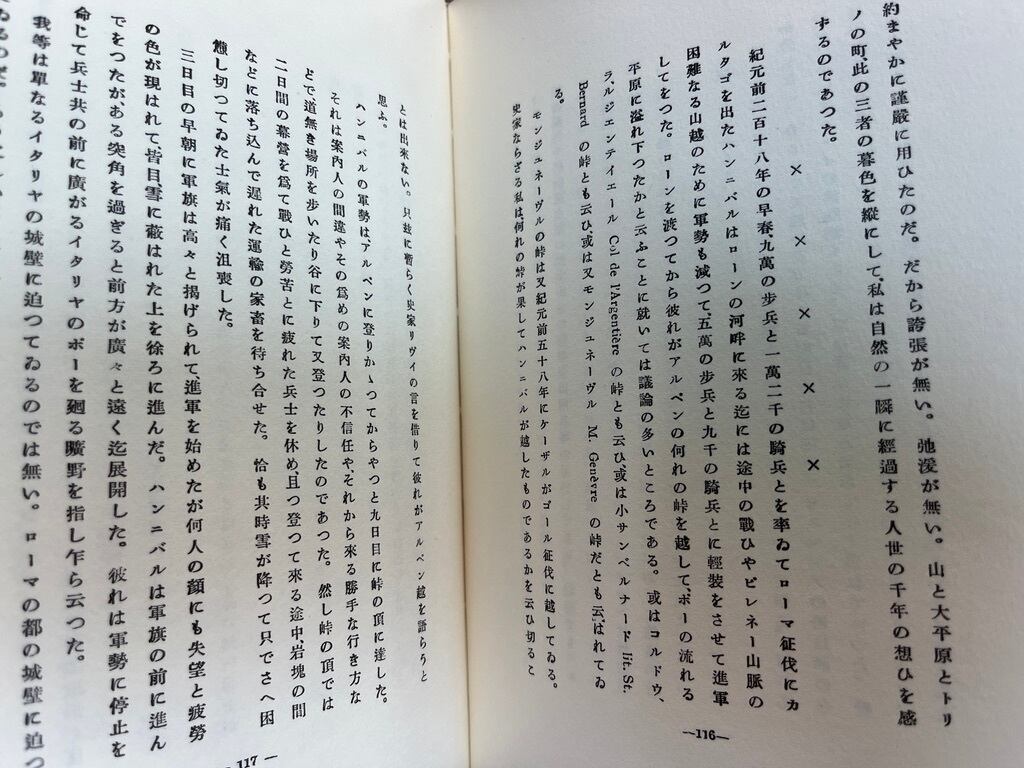 約まやかに謹嚴に用ひたのだ。だから誇張が無い。弛湲が無い。山と大平原とトリ
ノの町、此の三者の暮色を縱にして、私は自然の一瞬に經過する人世の千年の想ひを感
ずるのであつた。
× × × × ×
紀元前二百十八年の早春、九萬の歩兵と一萬二千の騎兵とを率ゐてローマ征伐にカ
ルタゴを出たハンニバルはローンの河畔に來る迄には途中の戰ひやピレネー山脈の
困難なる山越のために軍勢も減つて、五萬の歩兵と九千の騎兵とに輕裝をさせて進軍
してをつた。ローンを渡つてから彼れがアルペンの何れの峠を越して、ポーの流れる
平原に溢れ下つたかと云ふことに就いては議論の多いところである。或はコルドウ、
ラ、ルジエンテイエール Col de l'Argentière の峠とも云ひ、或は小サンベルナード lit. St.
Bernard の峠とも云ひ、或は又モンジユネーヴル M. Genèvre の峠だとも云はれてゐ
る。
モンジユネーヴルの峠は又紀元前五十八年にケーザルがゴール征伐に越してゐる。
史家ならざる私は何れの峠が果してハンニバルが越したものであるかを云ひ切るこ
—116—
とは出來ない。只玆に暫らく史家リヴイの言を借りて彼れがアルペン越を語らうと
思ふ。
ハンニバルの軍勢はアルペンに登りかゝつてからやつと九日目に峠の頂に達した。
それは案内人の間違やその爲めの案内人の不信任や、それから來る勝手な行き方な
どで道無き場所を歩いたり谷に下りて又登つたりしたのであつた。然し峠の頂では
二日間の幕營を爲て戰ひと勞苦とに疲れた兵士を休め、且つ登つて來る途中、岩塊の間
などに落ち込んで遲れた運輸の家畜を待ち合せた。恰も其時雪が降つて只でさへ困
憊し切つてゐた士氣が痛く沮喪した。
三日目の早朝に軍旗は高々と揭げられて、進軍を始めたが何人の顏にも失望と疲勞
の色が現はれて、皆目雪に蔽はれた上を徐ろに進んだ。ハンニバルは軍旗の前に進ん
でをつたがある突角を過ぎると前方が廣々と遠く迄展開した。彼れは軍勢に停止を
命じて兵士共の前に廣がるイタリヤのポーを廻る曠野を指し乍ら云つた。
我等は單なるイタリヤの城壁に迫つてゐるのでは無い。ローマの都の城壁に迫つ
117—